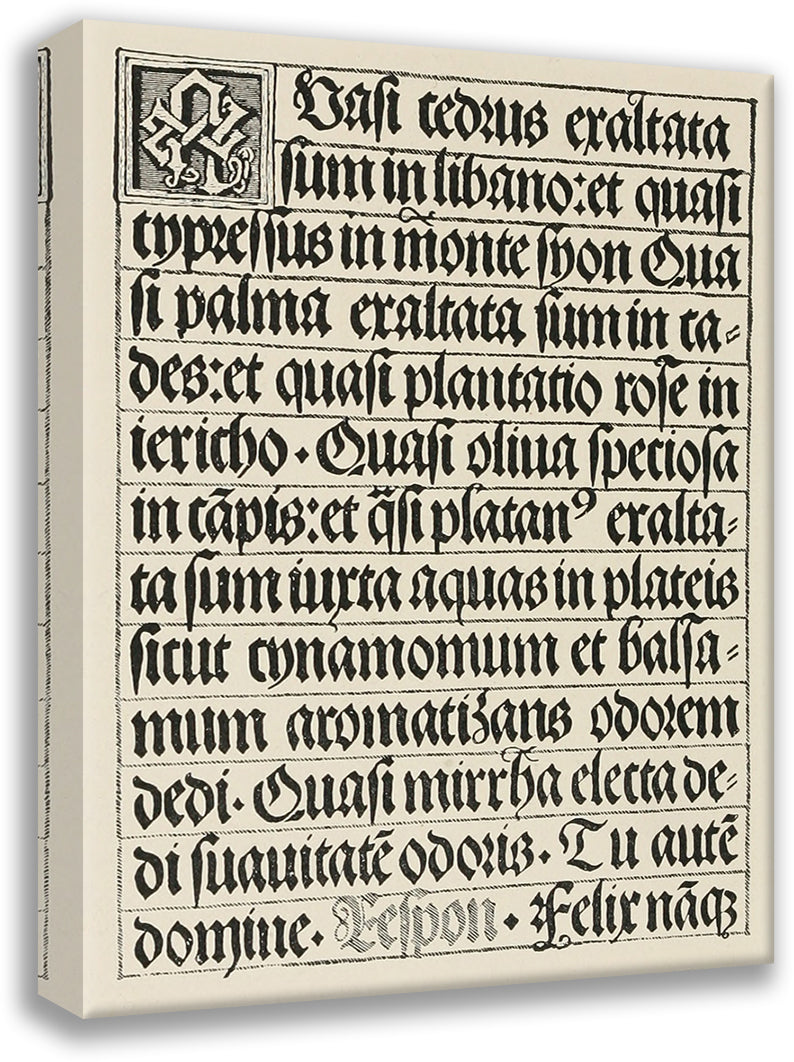 QUasi cedrus exaltata
sum in libano: et quasi
cypressus in monte syon Qua
si palma exaltata sum in ca-
des: et quasi plantatio rose in
iericho. Quasi oliua speciosa
in cāpis: et q̄si platanꝰ exalta-
ta sum iuxta aquas in plateis
sicut cynamomum et balsa-
mum aromatizans odorem
dedi. Quasi mirrha electa de-
di suauitatē odoris. Tu autē
domine. Respon. Felix nāqꝫ